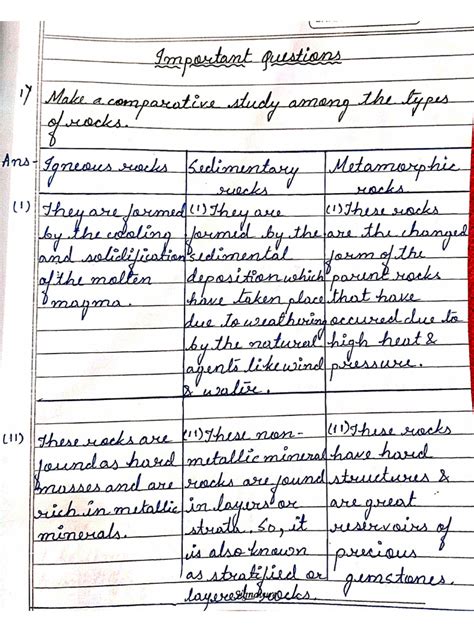 Important Questions
1) Make a comparative study among the types
of rocks.
Ans- Igneous rocks
(I) They are formed
by the cooling
and solidification
of the molten
magma.
(II) These rocks are
found as hard
masses and are
rich in metallic
minerals.
Sedimentary
rocks
(I) They are
formed by the
sedimental
deposition which
have taken place
due to weathering
by the natural
agents like wind
& water.
(II) These non-
metallic mineral
rocks are found
in layers or
strata. So, it
is also known
as stratified or
layered rocks.
Metamorphic
rocks
(I) These rocks
are the changed
form of the
parent rocks
that have
occured due to
high heat &
pressure.
(II) These rocks
have hard
structures &
are great
reservoirs of
precious
gemstones.